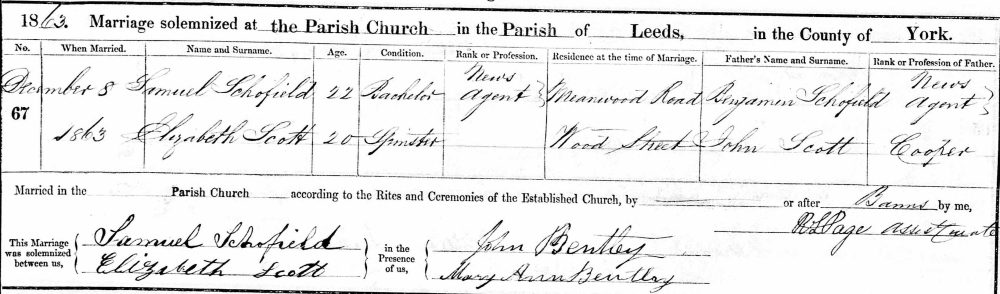 1863. Marriage solemnized at the Parish Church in the Parish of Leeds, in the County of York.
No. When Married. Name and Surname. Age. Condition. Rank or Profession. Residence at the time of Marriage. Father's Name and Surname. Rank or Profession of Father.
67 December 8 Samuel Schofield 22 Bachelor News Agent Meanwood Road Benjamin Schofield News Agent
1863 Elizabeth Scott 20 Spinster Wood Street John Scott Cooper
Married in the Parish Church according to the Rites and Ceremonies of the Established Church, by or after Banns by me,
This Marriage was solemnized between us, Samuel Schofield Elizabeth Scott in the Presence of us, John Bentley Mary Ann Bentley
Page